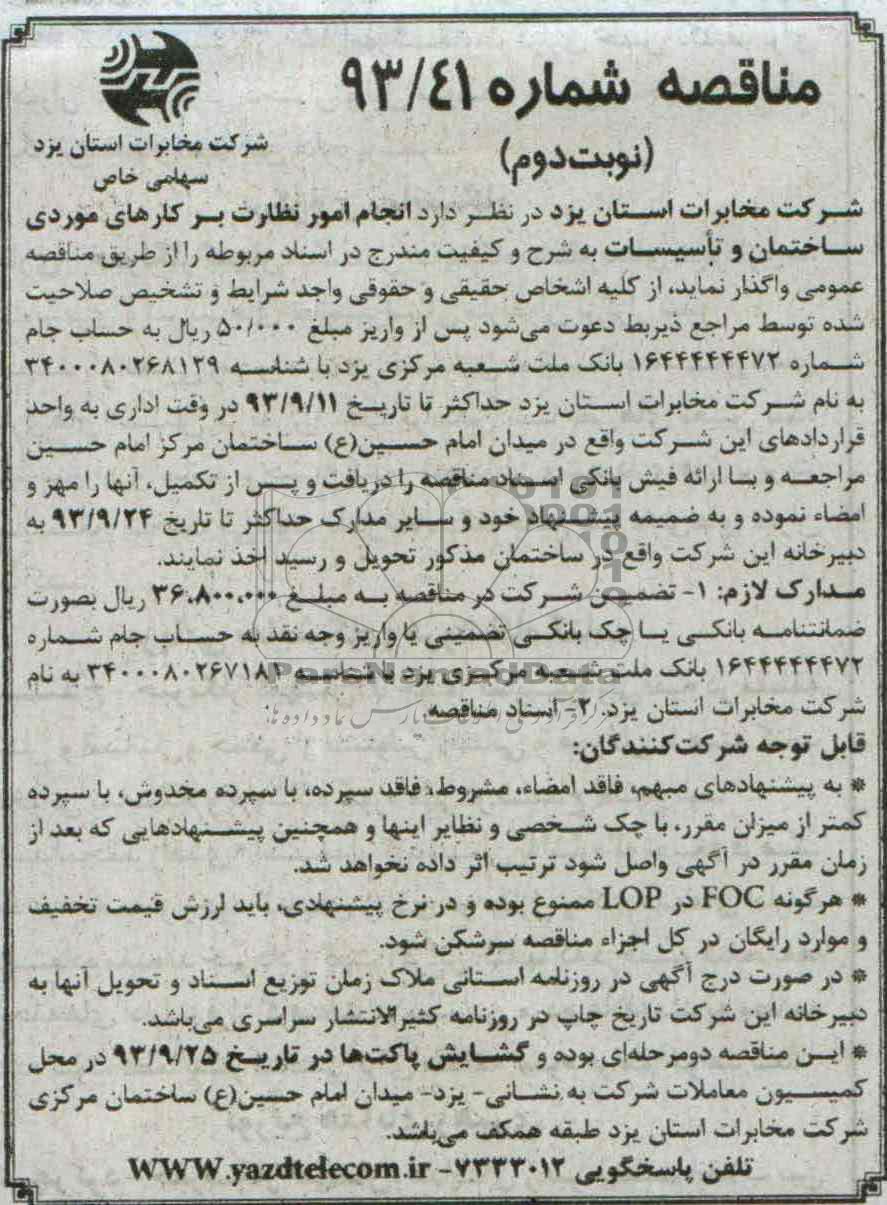 مناقصه شماره ۹۳/۴۱
(نوبت دوم)
شرکت مخابرات استان یزد
سهامی خاص
شـرکت مخابرات اسـتان یزد در نظـر دارد انجام امور نظارت بـر کارهای موردی
سـاختمان و تأسیسـات به شرح و کیفیت مندرج در اسناد مربوطه را از طریق مناقصه
عمومی واگذار نماید، از کلیه اشخاص حقیقی و حقوقی واجد شرایط و تشخیص صلاحیت
شده توسط مراجع ذیربط دعوت می‌شود پس از واریز مبلغ ۵۰/۰۰۰ ریال به حساب جام
شـماره ۱۶۴۴۴۴۴۴۷۲ بانک ملت شـعبه مرکزی یزد با شناسـه ۳۴۰۰۰۸۰۲۶۸۱۲۹
به نام شـرکت مخابرات اسـتان یزد حداکثر تا تاریـخ ۹۳/۹/۱۱ در وقت اداری به واحد
قراردادهای این شـرکت واقع در میدان امام حسـین(ع) سـاختمان مرکز امام حسـین
مراجعـه و بـا ارائه فیش بانکی اسـناد مناقصه را دریافت و پـس از تکمیل، آنها را مهر و
امضاء نموده و به ضمیمه پیشـنهاد خود و سـایر مدارک حداکثر تا تاریخ ۹۳/۹/۲۴ به
دبیرخانه این شرکت واقع در ساختمان مذکور تحویل و رسید اخذ نمایند.
مـدارک لازم: ۱- تضمیـن شـرکت در مناقصه بـه مبلـغ ۳۶،۸۰۰،۰۰۰ ریال بصورت
ضمانتنامـه بانکـی یـا چک بانکـی تضمینی یا واریز وجه نقد به حسـاب جام شـماره
۱۶۴۴۴۴۴۴۷۲ بانک ملت شـعبه مرکـزی یزد با شناسـه ۳۴۰۰۰۸۰۲۶۷۱۸۲ به نام
شرکت مخابرات استان یزد. ۲- اسناد مناقصه
قابل توجه شرکت‌کنندگان:
* به پیشنهادهای مبهم، فاقد امضاء، مشروط، فاقد سپرده، با سپرده مخدوش، با سپرده
کمتر از میزان مقرر، با چک شـخصی و نظایر اینها و همچنین پیشـنهادهایی که بعد از
زمان مقرر در آگهی واصل شود ترتیب اثر داده نخواهد شد.
* هرگونه FOC در LOP ممنوع بوده و در نرخ پیشنهادی، باید ارزش قیمت تخفیف
و موارد رایگان در کل اجزاء مناقصه سرشکن شود.
* در صورت درج آگهی در روزنامه اسـتانی ملاک زمان توزیع اسـناد و تحویل آنها به
دبیرخانه این شرکت تاریخ چاپ در روزنامه کثیرالانتشار سراسری می‌باشد.
* ایـن مناقصه دومرحله‌ای بوده و گشـایش پاکت‌ها در تاریـخ ۹۳/۹/۲۵ در محل
کمیسـیون معاملات شرکت به نشـانی- یزد- میدان امام حسین(ع) ساختمان مرکزی
شرکت مخابرات استان یزد طبقه همکف می‌باشد.
تلفن پاسخگویی ۷۳۳۳۰۱۲- WWW.yazdtelecom.ir
ParsNamadData